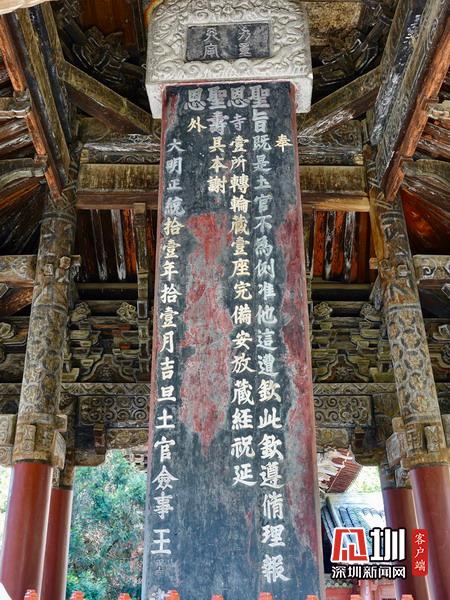 奉
聖旨既是土官不為例准他這遭欽此欽遵脩理報
恩寺壹所轉輪藏壹座完備安放藏經祝延
聖壽具本謝
恩外
大明正統拾壹年拾壹月吉旦土官僉事王
圳
深圳新闻网
客户端